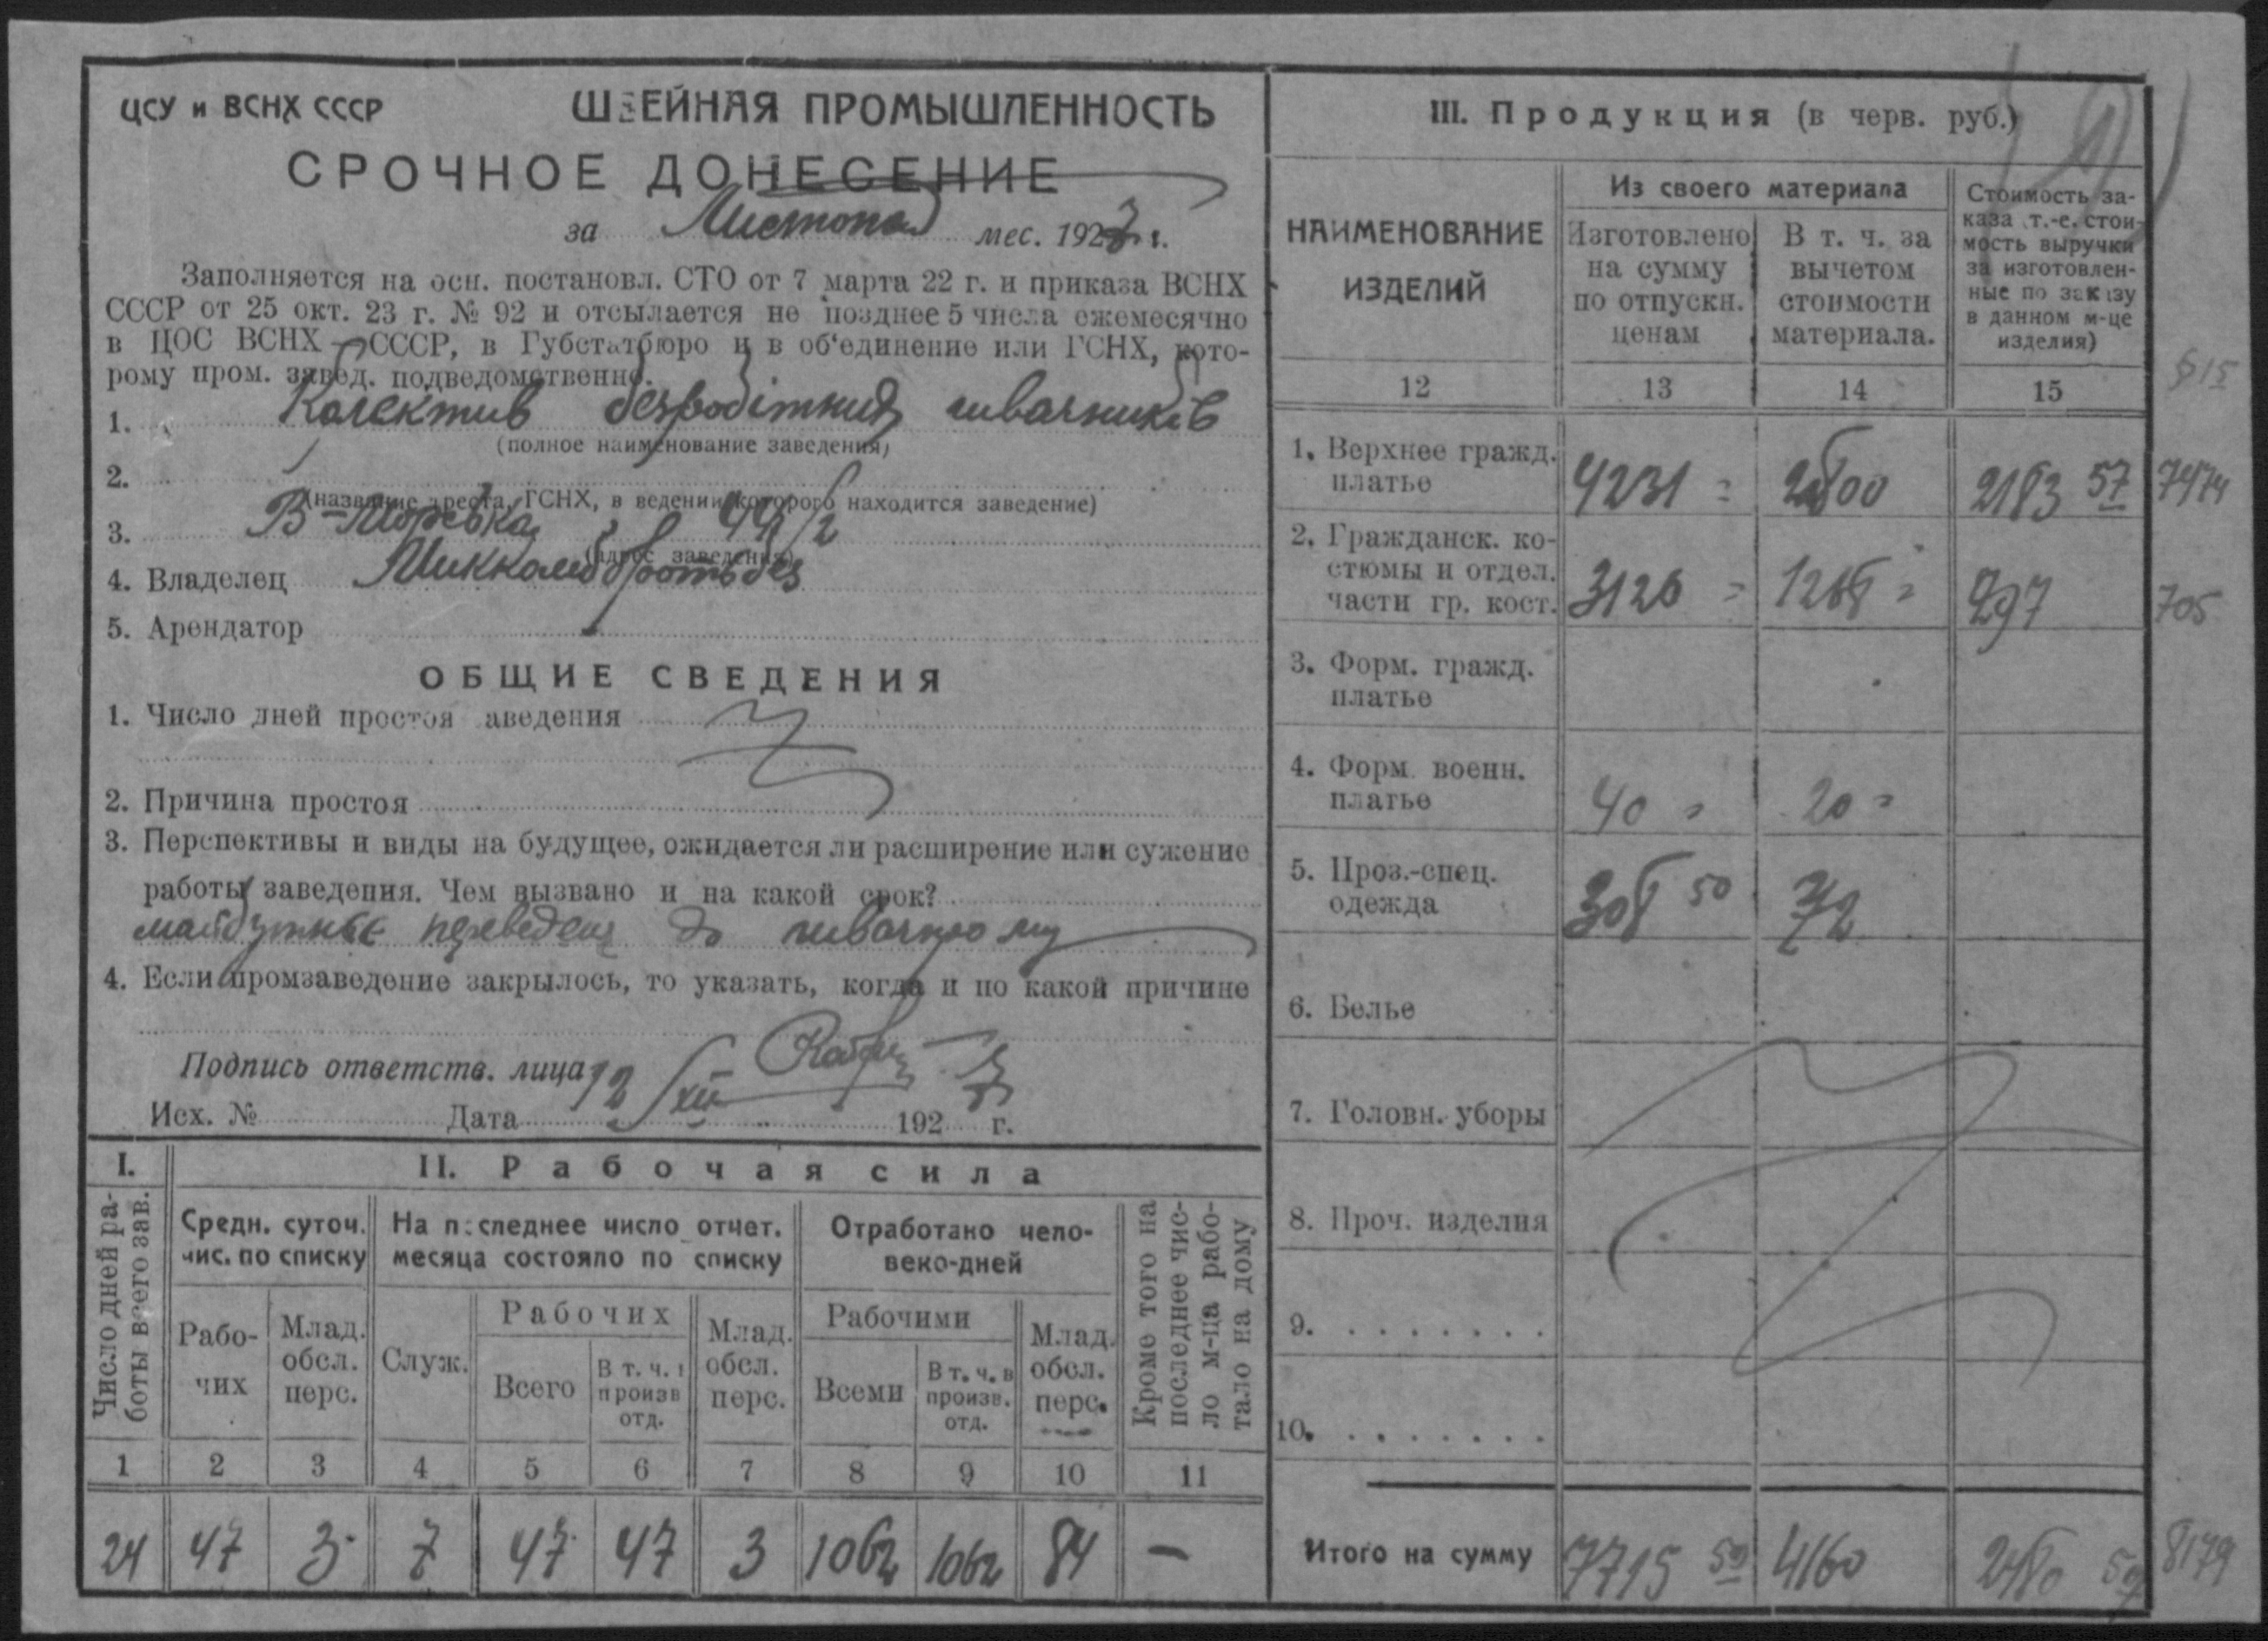 ЦСУ и ВСНХ СССР
ШВЕЙНАЯ ПРОМЫШЛЕННОСТЬ
СРОЧНОЕ ДОНЕСЕНИЕ
за Листопад мес. 1927 г.
Заполняется на осн. постановл. СТО от 7 марта 22 г. и приказа ВСНХ
СССР от 25 окт. 23 г. № 92 и отсылается не позднее 5 числа ежемесячно
в ЦОС ВСНХ СССР, в Губстатбюро и в об'единение или ГСНХ, кото-
рому пром. завед. подведомственно.
1. Колектив безробітних швачників
(полное наименование заведения)
2.
(название треста, ГСНХ, в ведении которого находится заведение)
3. 44/2
(адрес заведения)
4. Владелец
5. Арендатор
ОБЩИЕ СВЕДЕНИЯ
1. Число дней простоя заведения
2. Причина простоя
3. Перспективы и виды на будущее, ожидается ли расширение или сужение
работы заведения. Чем вызвано и на какой срок?
до
4. Если промзаведение закрылось, то указать, когда и по какой причине
Подпись ответств. лица
Исх. № Дата 12/XII 1927 г.
I.
Число дней ра-
боты всего зав.
II. Рабочая сила
Средн. суточ.
чис. по списку
На последнее число отчет.
месяца состояло по списку
Отработано чело-
веко-дней
Кроме того на
последнее чис-
ло м-ца рабо-
тало на дому
Рабо-
чих
Млад.
обсл.
перс.
Служ.
Рабочих
Всего
В т. ч. в
произв
отд.
Млад.
обсл.
перс.
Рабочими
Всеми
В т. ч. в
произв.
отд.
Млад.
обсл.
перс.
1 2 3 4 5 6 7 8 9 10 11
24 47 3 7 47 47 3 1062 1062 84 —
III. Продукция (в черв. руб.)
НАИМЕНОВАНИЕ
ИЗДЕЛИЙ
Из своего материала
Изготовлено
на сумму
по отпускн.
ценам
В т. ч. за
вычетом
стоимости
материала.
Стоимость за-
каза (т.-е. стои-
мость выручки
за изготовлен-
ные по заказу
в данном м-це
изделия)
12 13 14 15
1. Верхнее гражд.
платье 4231 = 2800 2183 57 7474
2. Гражданск. ко-
стюмы и отдел.
части гр. кост. 3126 = 1268 = 297 705
3. Форм. гражд.
платье
4. Форм. военн.
платье 40 = 20 =
5. Проз.-спец.
одежда 308 50 72
6. Белье
7. Головн. уборы
8. Проч. изделия
9. . . . . . . .
10. . . . . . . .
Итого на сумму 7715 50 4160 2480 57 8179